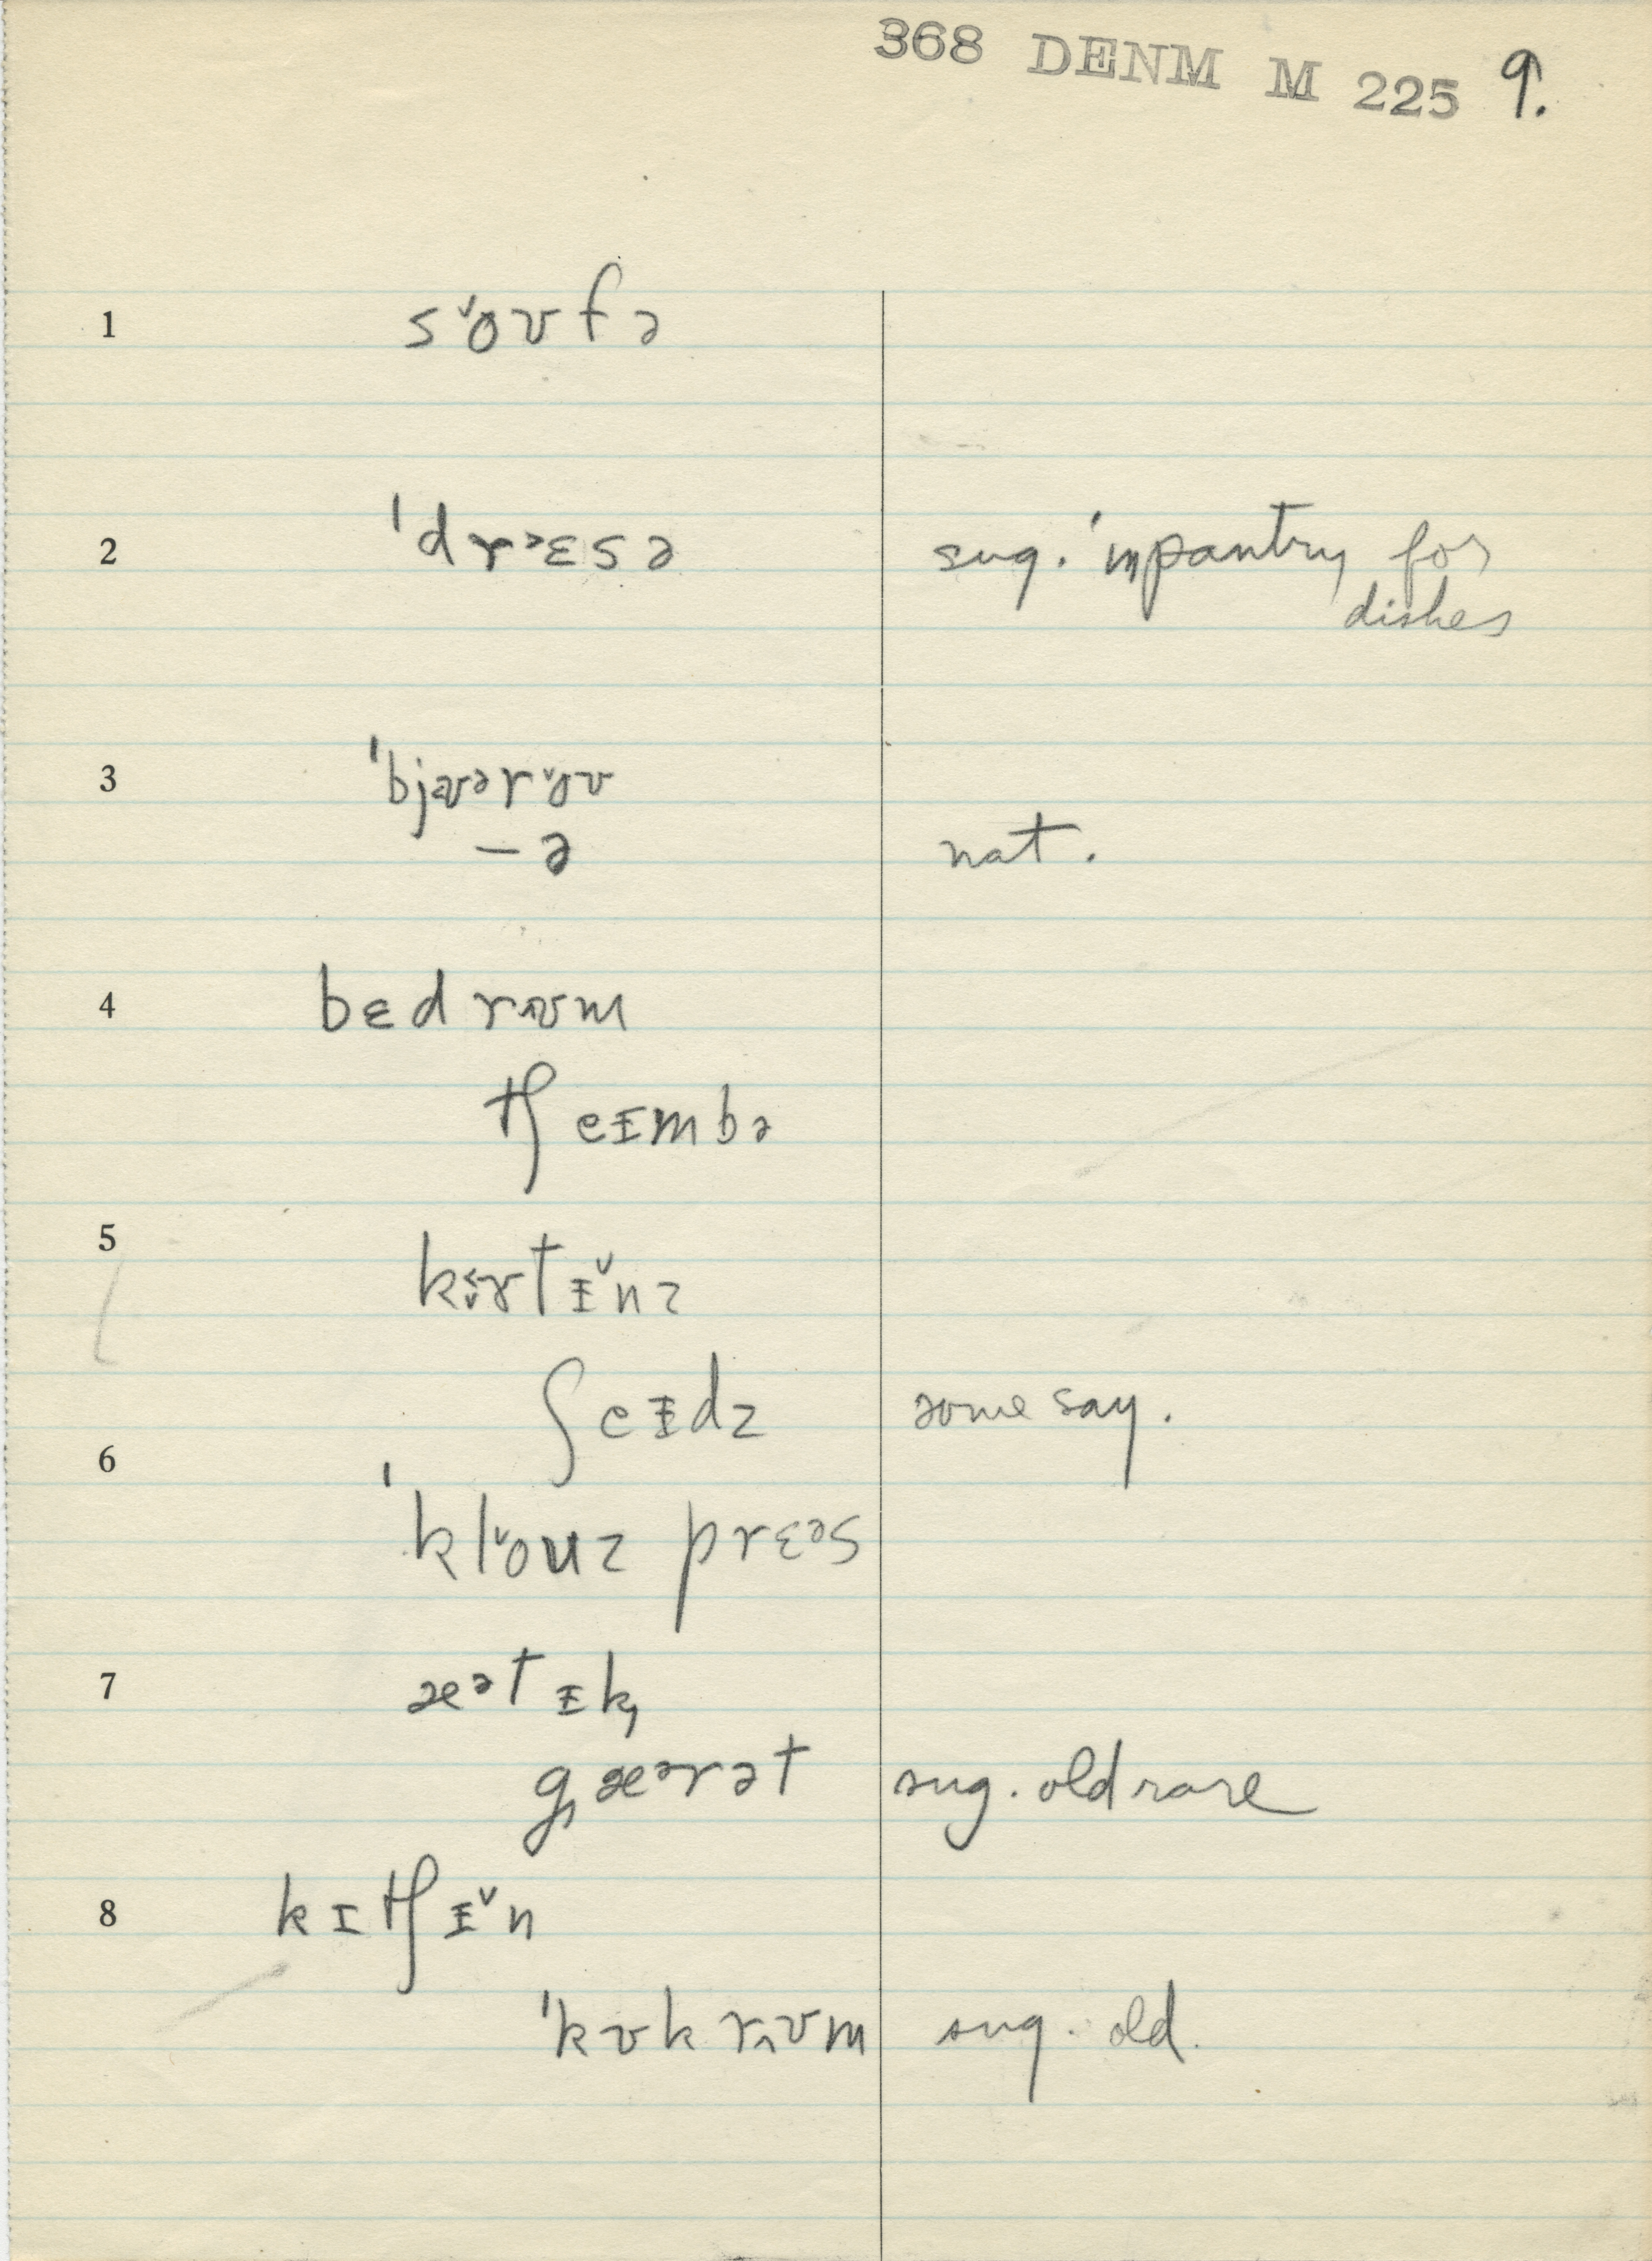 368 DENM M 225 9.
1 so˅ʊfə
2 ˈdr˃ɛsə sug. in pantry for
dishes
3 ˈbjɞʊəro˅ʊ
– ə nat.
4 bɛd rʊm
tʃeɪmbə
5 kɜrtᵻ˅nz
ʃeᵻdz some say.
6 ˈklo˅uz prɛəs
7 æətᵻk,
g,æərət sug. old rare
8 kɪtʃᵻ˅n
ˈkʊk rʊm sug. old.